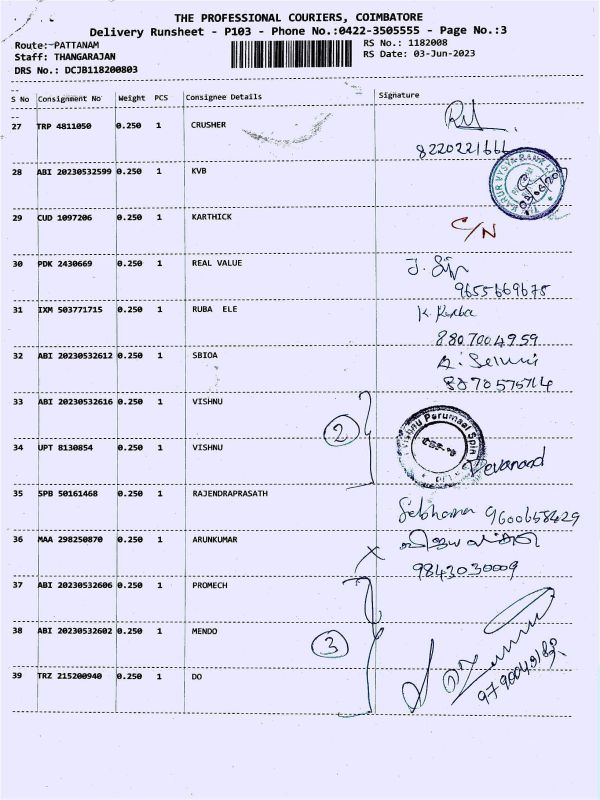 THE PROFESSIONAL COURIERS, COIMBATORE
Delivery Runsheet - P103 - Phone No.:0422-3505555 - Page No.:3
Route:-PATTANAM
RS No.: 1182008
Staff: THANGARAJAN
RS Date: 03-Jun-2023
DRS No.: DCJB118200803
S No Consignment No Weight PCS Consignee Details Signature
27 TRP 4811050 0.250 1 CRUSHER
8220221666
28 ABI 20230532599 0.250 1 KVB
KARUR VYSYA BANK LTD
29 CUD 1097206 0.250 1 KARTHICK C/N
30 PDK 2430669 0.250 1 REAL VALUE
9655669675
31 IXM 503771715 0.250 1 RUBA ELE
8807004959
32 ABI 20230532612 0.250 1 SBIOA
33 ABI 20230532616 0.250 1 VISHNU
2
Vishnu Perumaal Spin
34 UPT 8130854 0.250 1 VISHNU
Devanand
35 SPB 50161468 0.250 1 RAJENDRAPRASATH
9600658429
36 MAA 298250870 0.250 1 ARUNKUMAR
9843030009
37 ABI 20230532606 0.250 1 PROMECH
38 ABI 20230532602 0.250 1 MENDO
3
39 TRZ 215200940 0.250 1 DO